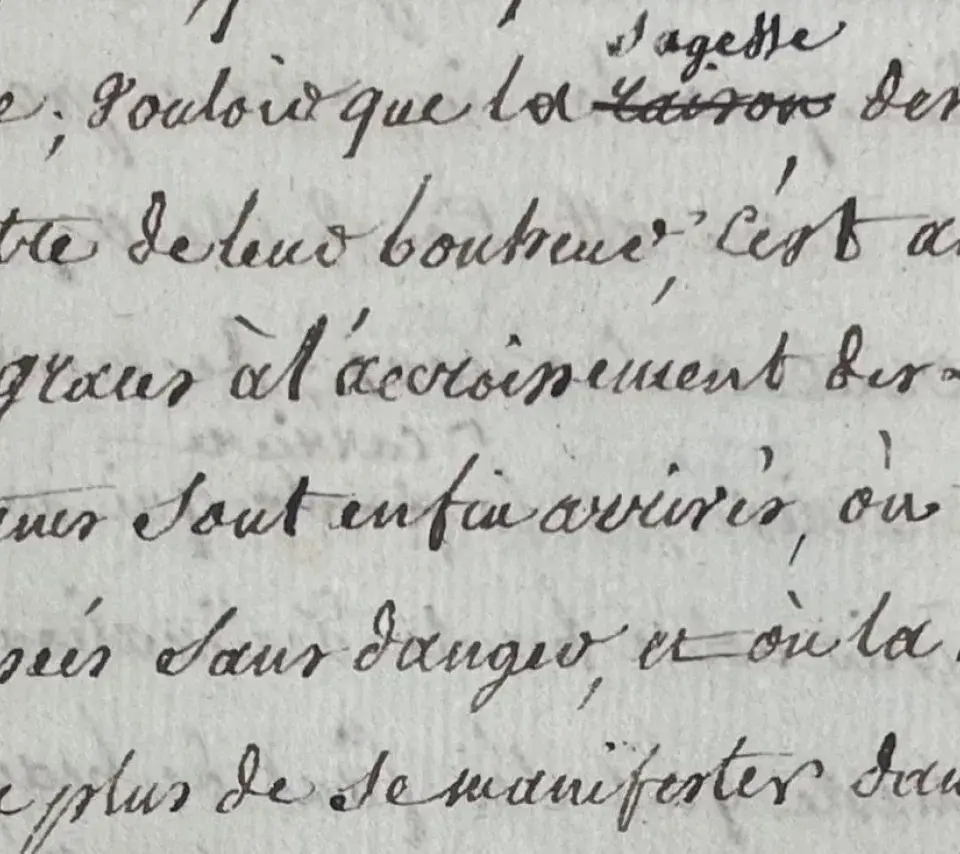 sagesse
e; vouloir que la raison des
tre de leur bonheur, c'est a
graces à l'accroissement des
sont enfin arrivés, où
sées sans danger, et où la
plus de se manifester dan